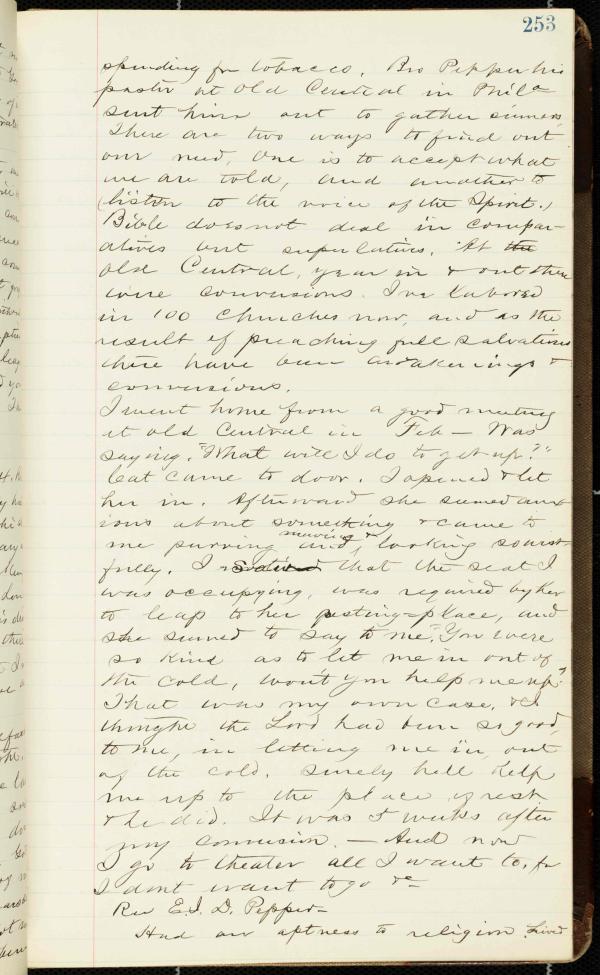 253
spending for tobacco. Bro Pepper his
pastor at Old Central in Phila
sent him out to gather sinners,
There are two ways to find out
our need, one is to accept what
we are told, and another to
(listen to the voice of the Spirit.)
Bible does not deal in compar-
atives but superlatives. At the
Old Central, year in & out there
were conversions. I've labored
in 100 churches now, and as the
result of preaching full salvation
there have been awakenings &
conversions.
I went home from a good meeting
at old Central in Feb — Was
saying, "What will I do to get up?"
Cat came to door. I opened & let
her in. Afterward she seemed anx-
ious about something & came to
me purring and, mewing & looking so wist-
fully. I noticed that the seat I
was occupying, was required by her
to leap to her resting-place, and
she seemed to say to me, "You were
so kind as to let me in out of
the cold, won't you help me up?"
That was my own case, & I
thought the Lord had been so good,
to me, in letting me in, out
of the cold. Surely he'll help
me up to the place of rest
& he did. It was 5 weeks after
my conversion. — And now
I go to theater all I want to, for
I dont want to go &c—
Rev E.I.D. Pepper—
Had an aptness to religion. Lived